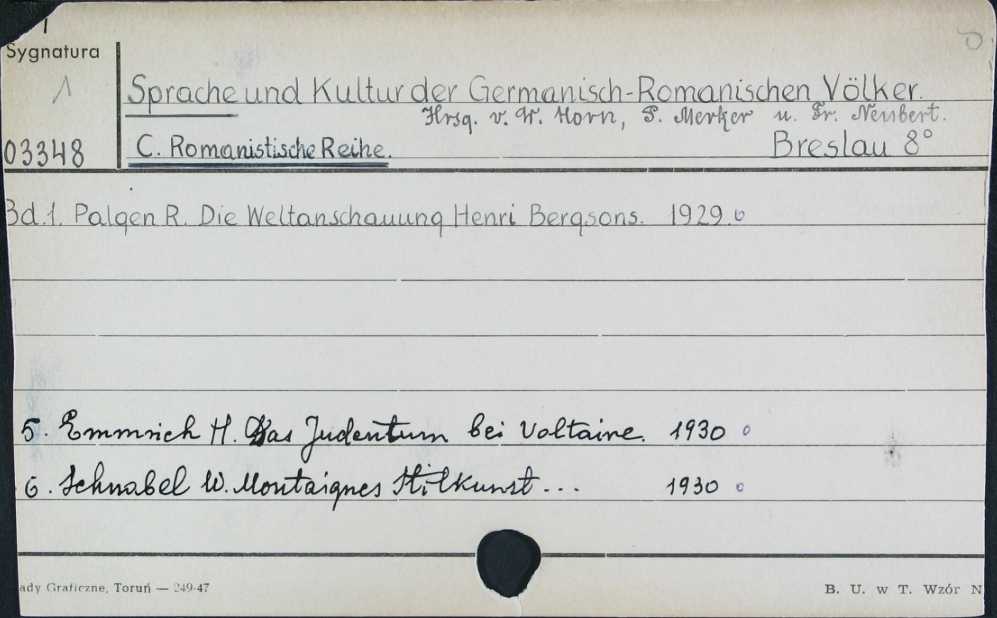 Sygnatura
1
03348
Sprache und Kultur der Germanisch-Romanischen Völker.
Hrsg. v. W. Horn, P. Merker u. Fr. Neubert.
C. Romanistische Reihe. Breslau 8°
Bd.1. Palgen R. Die Weltanschauung Henri Bergsons. 1929.
5. Emmrich H. Das Judentum bei Voltaire. 1930
6. Schnabel W. Montaignes Stilkunst ... 1930
ady Graficzne, Toruń — 249-47
B. U. w T. Wzór N